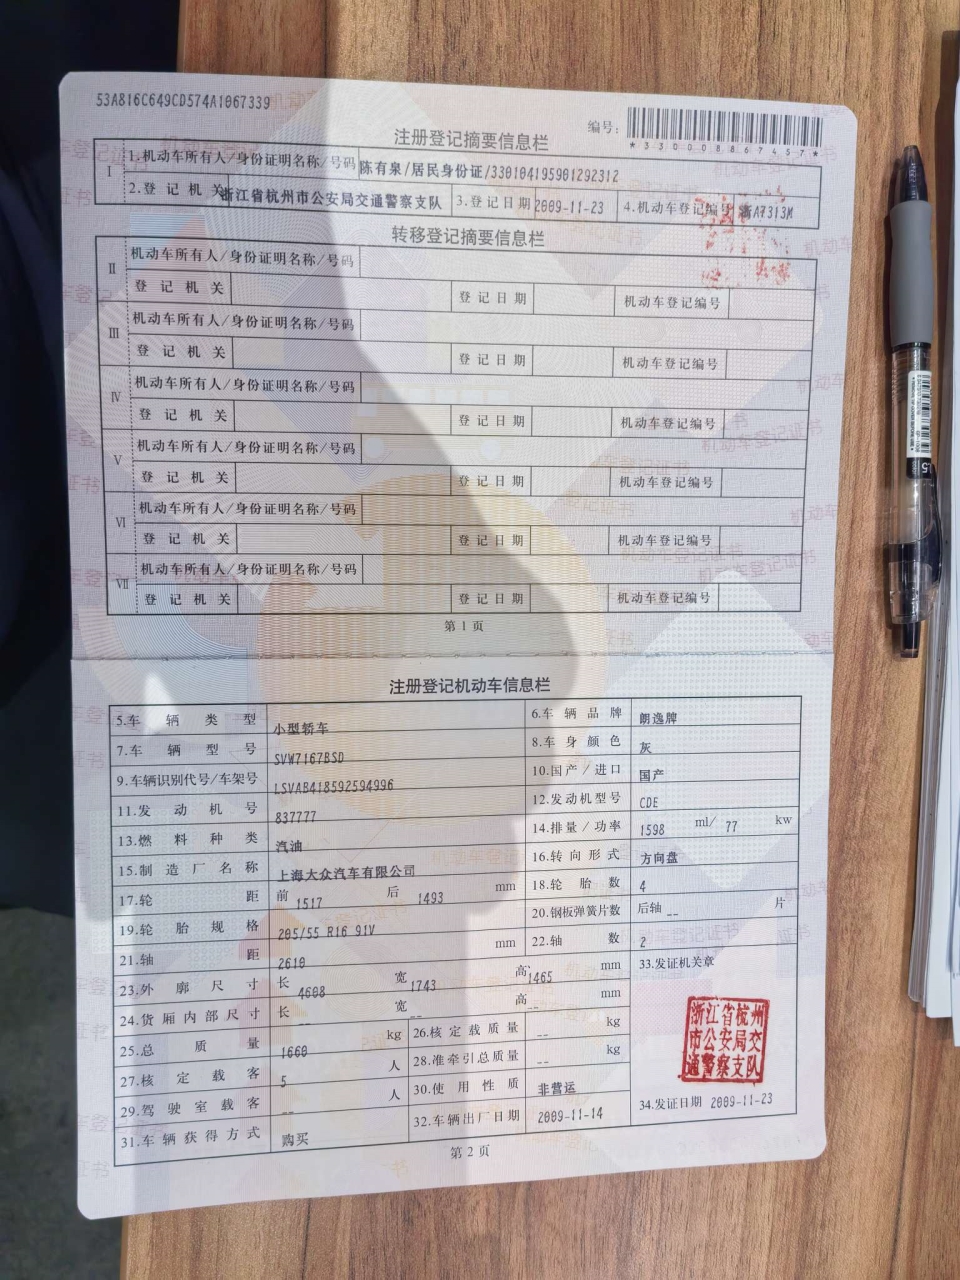 53A816C649CD574A1067339
编号：
*330008867457*
注册登记摘要信息栏
I 1.机动车所有人/身份证明名称/号码 陈有泉/居民身份证/330104195901292312
2.登记机关 浙江省杭州市公安局交通警察支队 3.登记日期 2009-11-23 4.机动车登记编号 浙A7313M
转移登记摘要信息栏
II 机动车所有人/身份证明名称/号码
登记机关 登记日期 机动车登记编号
III 机动车所有人/身份证明名称/号码
登记机关 登记日期 机动车登记编号
IV 机动车所有人/身份证明名称/号码
登记机关 登记日期 机动车登记编号
V 机动车所有人/身份证明名称/号码
登记机关 登记日期 机动车登记编号
VI 机动车所有人/身份证明名称/号码
登记机关 登记日期 机动车登记编号
VII 机动车所有人/身份证明名称/号码
登记机关 登记日期 机动车登记编号
第1页
注册登记机动车信息栏
5.车辆类型 小型轿车 6.车辆品牌 朗逸牌
7.车辆型号 SVW7167BSD 8.车身颜色 灰
9.车辆识别代号/车架号 LSVAB418592594996 10.国产/进口 国产
11.发动机号 837777 12.发动机型号 CDE
13.燃料种类 汽油 14.排量/功率 1598 ml/ 77 kw
15.制造厂名称 上海大众汽车有限公司 16.转向形式 方向盘
17.轮距 前 1517 后 1493 mm 18.轮胎数 4
19.轮胎规格 205/55 R16 91V 20.钢板弹簧片数 后轴 -- 片
21.轴距 2610 mm 22.轴数 2
23.外廓尺寸 长 4608 宽 1743 高 1465 mm 33.发证机关章
24.货厢内部尺寸 长 -- 宽 -- 高 -- mm
浙江省杭州市公安局交通警察支队
25.总质量 1660 kg 26.核定载质量 -- kg
27.核定载客 5 人 28.准牵引总质量 -- kg
29.驾驶室载客 -- 人 30.使用性质 非营运
31.车辆获得方式 购买 32.车辆出厂日期 2009-11-14 34.发证日期 2009-11-23
第2页